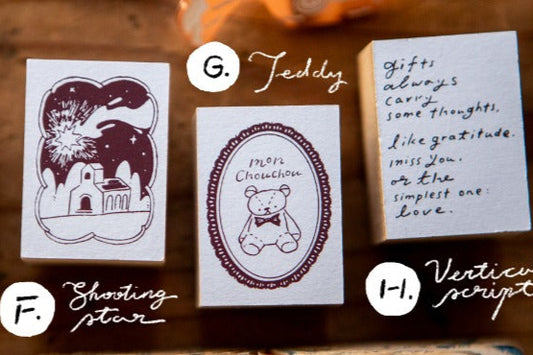 G.
Teddy
mon
Chouchou
gifts
always
carry
some thoughts.
like gratitude.
miss you.
or the
simplest one:
love.
F.
Shooting
star
H.
script